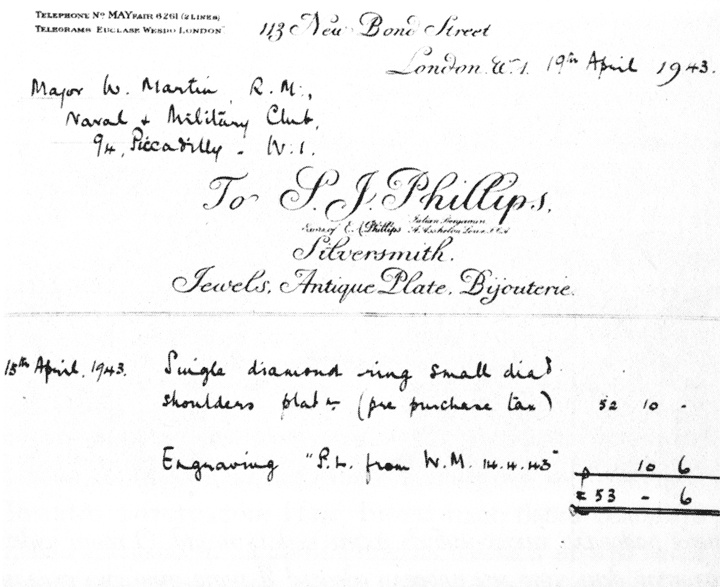 TELEPHONE Nº MAYFAIR 6261 (2 LINES)
TELEGRAMS EUCLASE WESDO LONDON
113 New Bond Street
London. W.1. 19th April 1943.
Major W. Martin, R.M.,
Naval & Military Club,
94, Piccadilly - W.1.
To S. J. Phillips,
of E. A. Phillips
Silversmith.
Jewels, Antique Plate, Bijouterie.
15th April, 1943. Single diamond ring small diad
shoulders plat (pre purchase tax) 52 10 -
Engraving "P.L. from W.M. 14.4.43" 10 6
£ 53 - 6